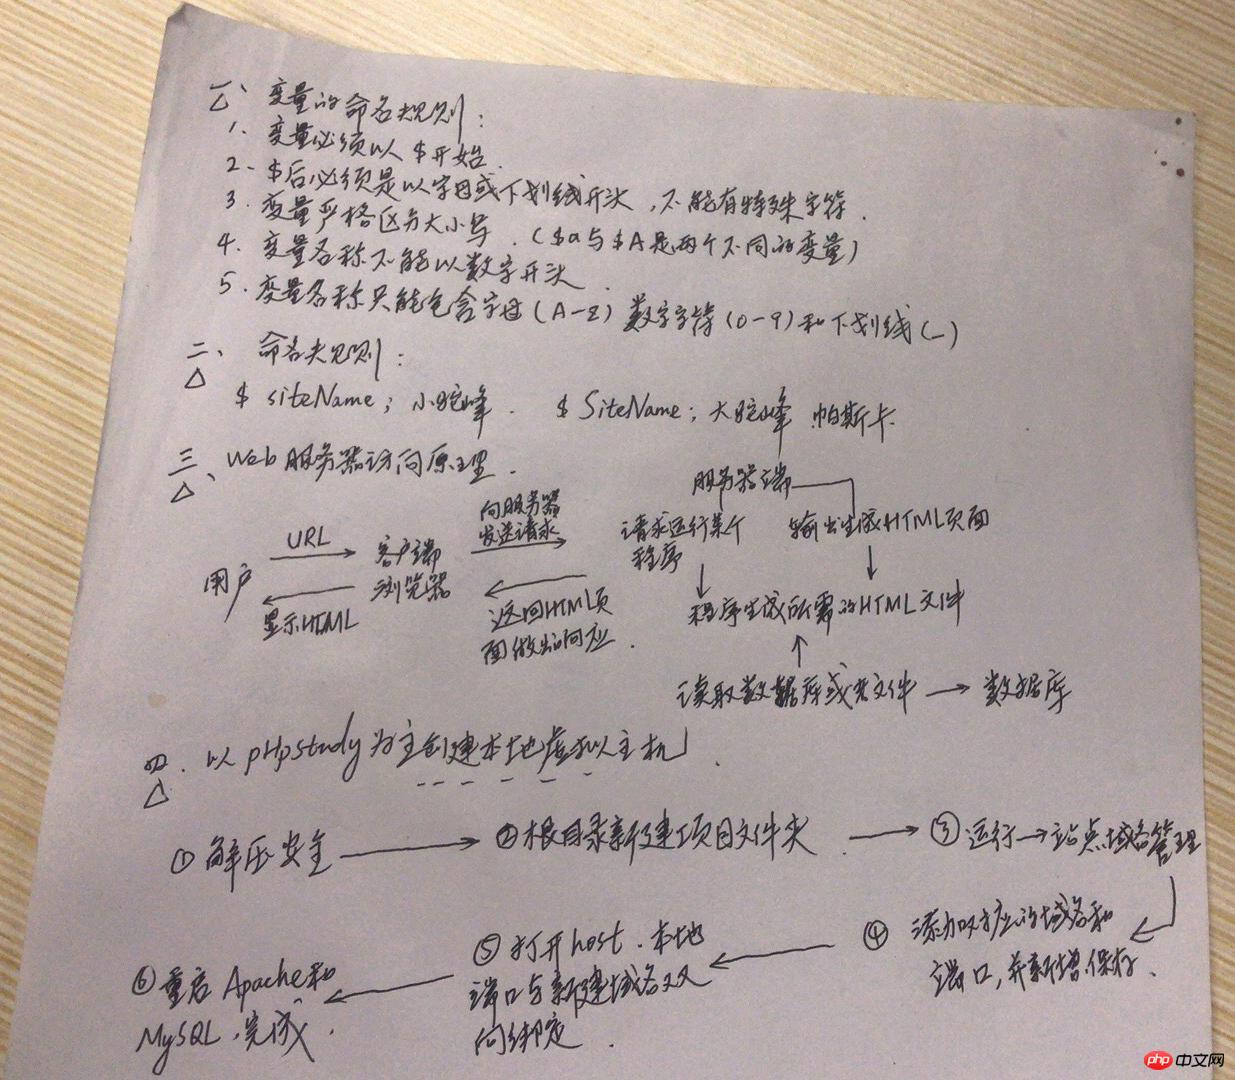 一、变量的命名规则：
1. 变量必须以$开始.
2. $后必须是以字母或下划线开头,不能有特殊字符.
3. 变量严格区分大小写.($a与$A是两个不同的变量)
4. 变量名称不能以数字开头.
5. 变量名称只能包含字母(A-Z)数字字符(0-9)和下划线(_)
二、命名规则：
$ siteName; 小驼峰. $ SiteName; 大驼峰 帕斯卡
三、Web服务器访问原理.
用户
URL
显示HTML
客户端
浏览器
向服务器
发送请求
返回HTML页
面做出响应.
服务器端
请求运行某个
程序
输出生成HTML页面
程序生成所需的HTML文件
读取数据库或者文件
数据库
四. 以pHpstudy为主创建本地虚拟主机.
①解压安全
②根目录新建项目文件夹
③运行→站点域名管理
④添加对应的域名和
端口,并新增,保存.
⑤打开host.本地
端口与新建域名双
向绑定.
⑥重启Apache和
MySQL,完成.
php中文网